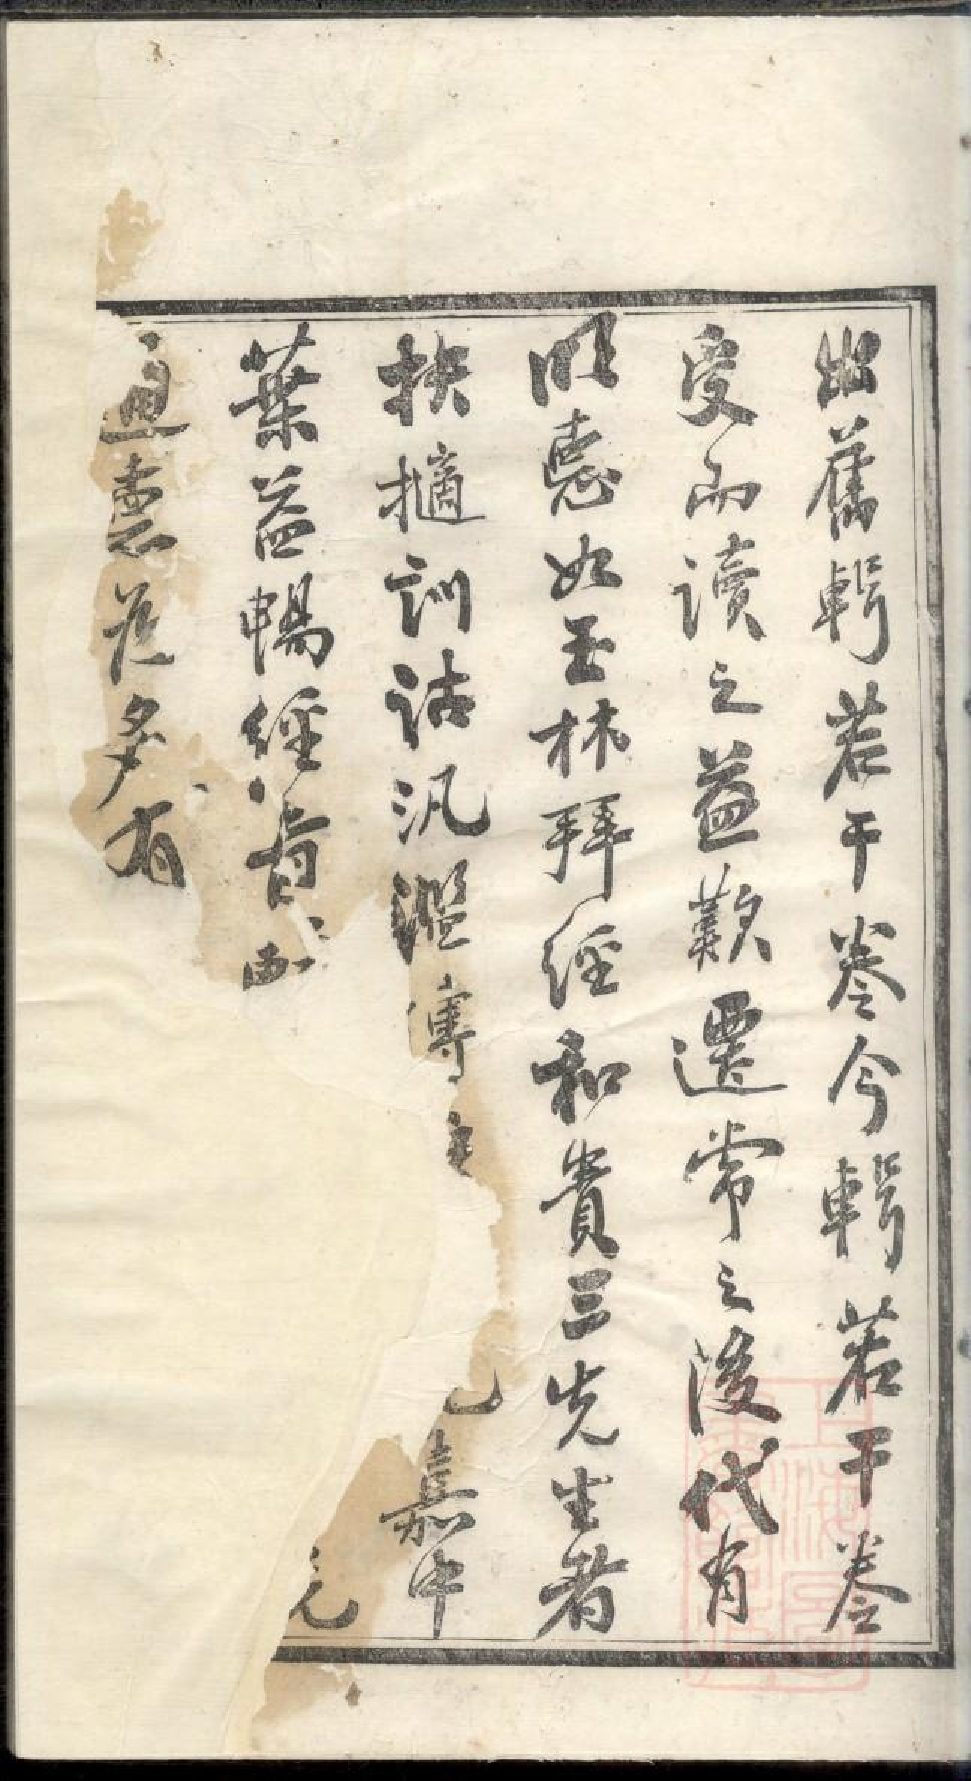 出舊輯若干卷今輯若干卷
受而讀之益歎遷常之後代有
明德如玉林拜經和貴三先生者
抉擿訓詁汎濫傳 嘉中
葉益暢經旨
通意 多有